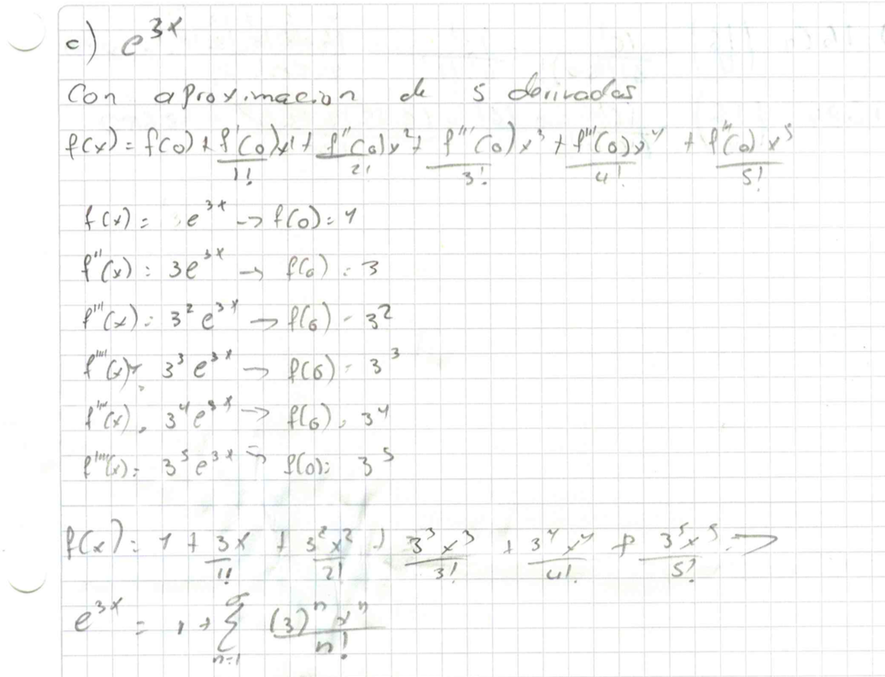 c) e^3x
Con aproximacion de 5 derivadas
f(x) = f(0) + f'(0)x^1/1! + f''(0)x^2/2! + f'''(0)x^3/3! + f''''(0)x^4/4! + f'''''(0)x^5/5!
f(x) = e^3x → f(0) = 1
f''(x) = 3e^3x → f(0) = 3
f'''(x) = 3^2 e^3x → f(0) = 3^2
f''''(x) = 3^3 e^3x → f(0) = 3^3
f''''(x) = 3^4 e^3x → f(0) = 3^4
f'''''(x) = 3^5 e^3x → f(0) = 3^5
f(x) = 1 + 3x/1! + 3^2x^2/2! + 3^3x^3/3! + 3^4x^4/4! + 3^5x^5/5! →
e^3x = 1 + Σ n=1 (3)^n x^n/n!